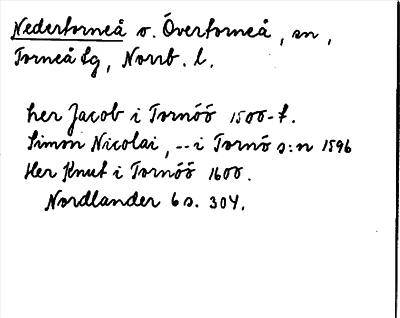 Nedertorneå o. Övertorneå, sn,
Torneå lg, Norrb. l.
her Jacob i Tornöö 1500-t.
Simon Nicolai, -- i Tornö s:n 1596
Her Knut i Tornöö 1600.
Nordlander 6 s. 304.